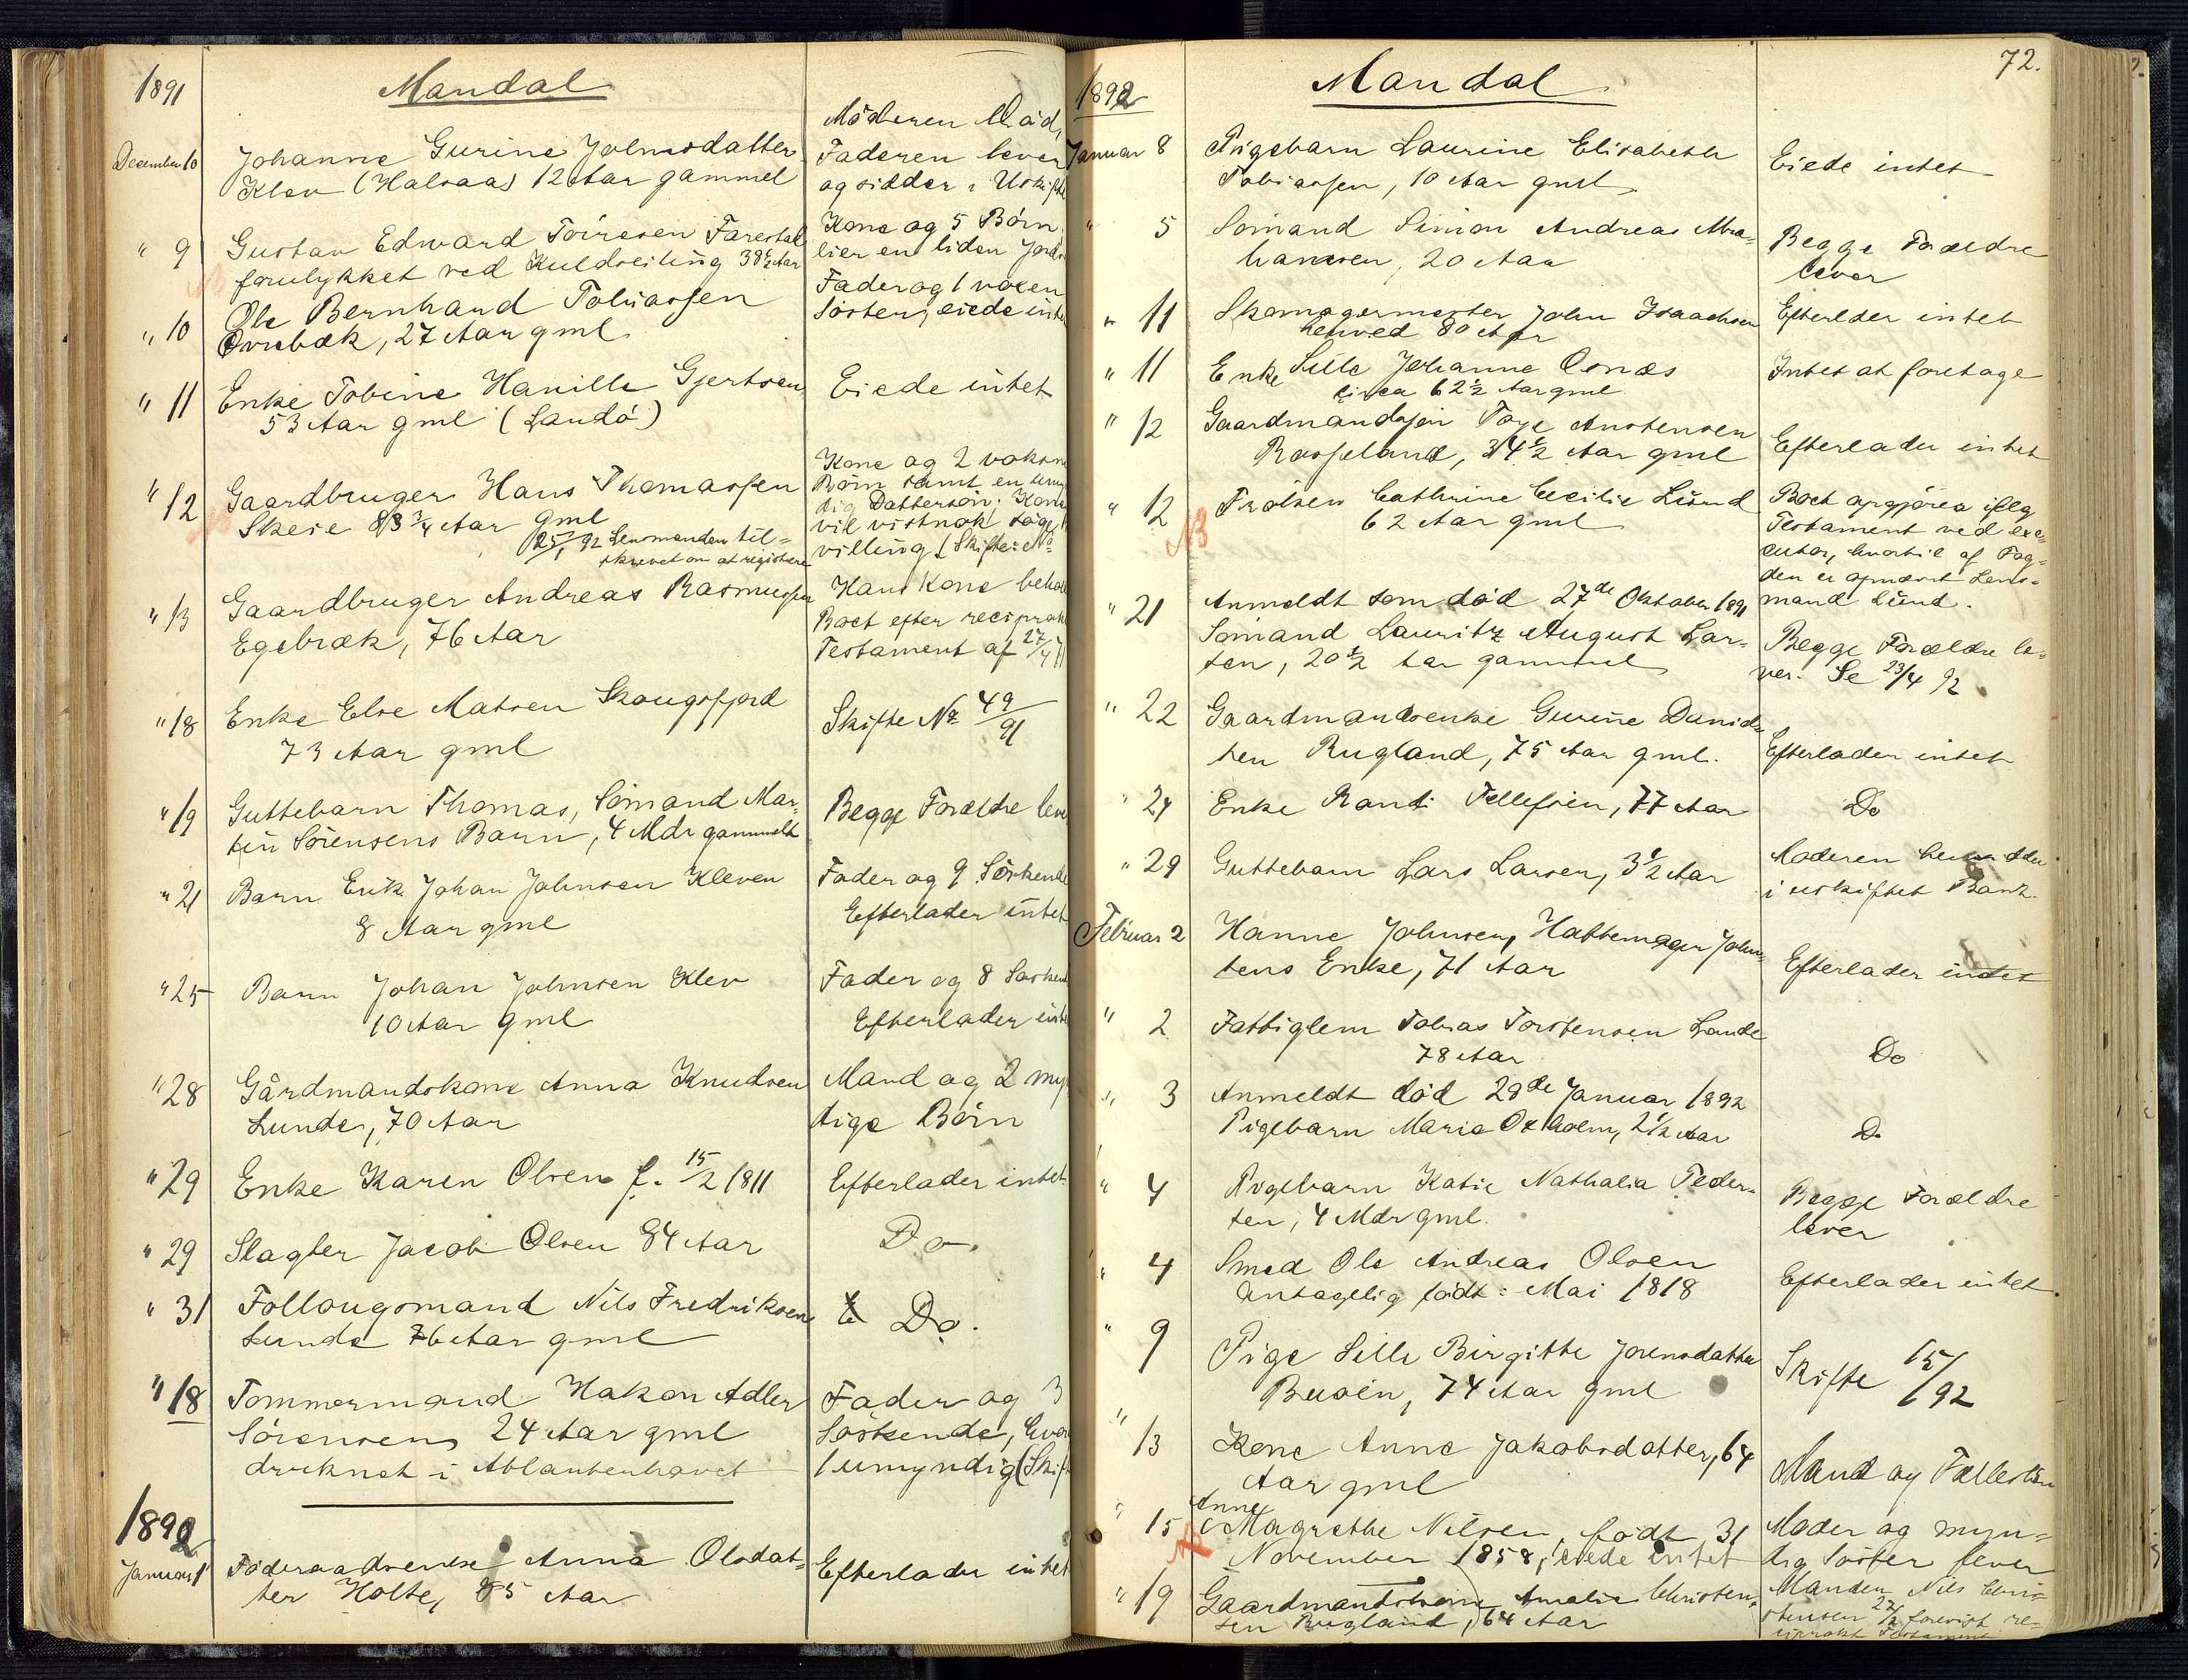 1891
Mandal
December 10
Johanne Gurine Johnsdatter
Klev (Halsaa) 12 Aar gammel
Moderen död,
Faderen lever
og sidder i Uskifte
" 9
Gustav Edward Töiresen Farestad
forulykket ved Kuldseiling 38½ Aar
Kone og 5 Börn
lier en liden Jord
" 10
Ole Bernhard Tobiassen
Övrebæk, 27 Aar gml
Fader og 1 voxen
Söster, eiede intet
" 11
Enke Tobine Hanille Gjertsen
53 Aar gml (Landö)
Eiede intet
" 12
Gaardbruger Hans Thomassen
Skeie 83¾ Aar gml
25/1 92 Lensmanden til-
skrevet om at registrere
Kone og 2 voksne
Börn samt en umyn
dig Dattersön; Kone
vil vistnok söge
villing (Skifte: No
" 13
Gaardbruger Andreas Rasmussen
Egebræk, 76 Aar
Hans Kone behol
Boet efter reciprok
Testament af 27/4 71
" 18
Enke Else Matsen Skougsfjord
73 Aar gml
Skifte No 49/91
" 19
Guttebarn Thomas, Sömand Mar-
tin Sörensens Barn, 4 Mdr gammelt
Begge Forældre leve
" 21
Barn Erik Johan Johnsen Kleven
8 Aar gml
Fader og 9 Söskende
Efterlader intet
" 25
Barn Johan Johnsen Klev
10 Aar gml
Fader og 8 Söskend
Efterlader intet
" 28
Gårdmandskone Anna Knudsen
Lunde, 70 Aar
Mand og 2 myn
dige Börn
" 29
Enke Karen Olsen f. 15/2 1811
Efterlader intet
" 29
Slagter Jacob Olsen 84 Aar
Do.
" 31
Follougsmand Nils Fredriksen
Lunde 76 Aar gml
Do.
" 18
Tömmermand Hakon Adler
Sörensen 24 Aar gml
druknet i Atlanterhavet
Fader og 3
Söskende, hvor
1 umyndig (Skif
1892
Januar 1
Föderaadsenke Anna Olsdat-
ter Holte, 85 Aar
Efterlader intet
72.
1892
Mandal
Januar 8
Pigebarn Laurine Elisabeth
Tobiassen, 10 Aar gml
Eiede intet
" 5
Sömand Simon Andreas Abra-
hamsen, 20 Aar
Begge Forældre
lever
" 11
Skomagermester John Isaachsen
henved 80 Aar
Efterlder intet
" 11
Enke Sille Johanne Osnæs
circa 62½ Aar gml
Intet at foretage
" 12
Gaardmandssön Toye Anstensen
Rosseland, 34½ Aar gml
Efterlader intet
" 12
NB
Fröken Cathrine Cecilie Lund
62 Aar gml
Boet opgjöres iflg
Testament ved exe-
cutor, hvortil af Fog-
den er opnævnt Lens-
mand Lund.
" 21
Anmeldt som död 27de Oktober 1891
Sömand Lauritz August Lar-
sen, 20½ Aar gammel
Begge Forældre le-
ver. Se 23/4 92
" 22
Gaardmandsenke Gurine Daniel
sen Rugland, 75 Aar gml.
Efterlader intet
" 24
Enke Randi Tellefsen, 77 Aar
Do
" 29
Guttebarn Lars Larsen, 3½ Aar
Moderen hensidder
i uskiftet Bo
Februar 2
Hanne Johnsen, Hattemager John-
sens Enke, 71 Aar
Efterlader intet
" 2
Fattiglem Tobias Torstensen Lande
78 Aar
Do
" 3
Anmeldt död 28de Januar 1892
Pigebarn Marie Oxholm, 2½ Aar
Do
" 4
Pigebarn Katie Nathalia Peder-
sen, 4 Mdr gml.
Begge Forældre
lever
" 4
Smed Ole Andreas Olsen
Antagelig födt: Mai 1818
Efterlader intet.
" 9
Pige Sille Birgitte Jörensdatter
Buöen, 74 Aar gml
Skifte 15/92
" 13
Kone Anne Jakobsdatter, 64
Aar gml
Mand og Fællesbörn
" 15
Anne
Magrethe Nilsen, födt 31
November 1858, eiede intet
Moder og myn-
dig Söster lever
" 19
Gaardmandskone Amalie Christen-
sen Rugland, 64 Aar
Manden Nils Chri-
stensen 27/2 forevist re-
ciprokt Testament